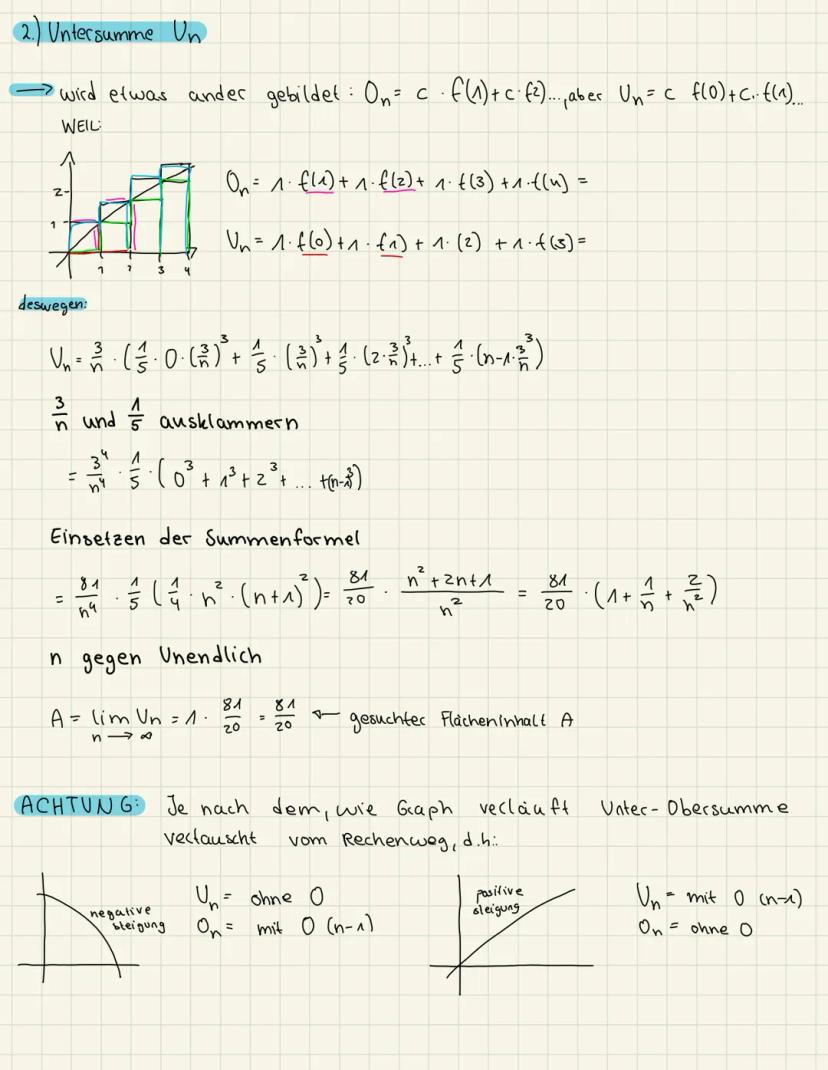 2.) Untersumme Un
→ wird etwas ander gebildet: On = c · f(1) + c · f2)..., aber Un = c f(0) + c · f(1)...
WEIL:
On = 1· f(1) + 1· f(2) + 1· f(3) + 1·f(4) =
2
1
Un = 1· f(0) + 1 · f1) + 1· (2) + 1· f(3) =
1 2 3 4
deswegen:
Un = 3/n · (1/5 · 0 · (3/n)³ + 1/5 · (3/n)³ + 1/5 · (2·3/n)³ + ... + 1/5 · (n-1·3/n)³)
3/n und 1/5 ausklammern
= 3⁴/n⁴ · 1/5 · (0³ + 1³ + 2³ + ... +(n-1)³)
Einsetzen der Summenformel
= 81/n⁴ · 1/5 (1/4 · n² · (n+1)²) = 81/20 · n² + 2n + 1/n² = 81/20 · (1 + 1/n + 2/n²)
n gegen Unendlich
A = lim Un = 1 · 81/20 = 81/20 ← gesuchter Flächeninhalt A
n → ∞
ACHTUNG: Je nach dem, wie Graph verläuft Unter- Obersumme
vertauscht vom Rechenweg, d.h.:
negative
steigung
Un = ohne 0
On = mit 0 (n-1)
positive
steigung
Un = mit 0 (n-1)
On = ohne 0